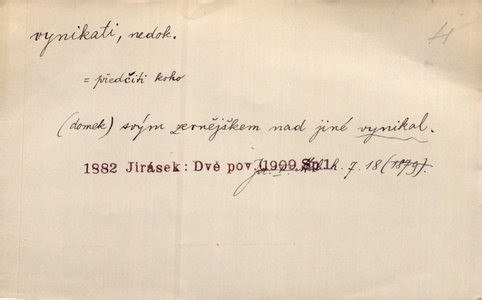 vynikati, nedok.
4
= předčiti koho
(domek) svým zernějškem nad jiné vynikal.
1882 Jirásek: Dvě pov. (1909 Sp 1. k. 7. 18 (1879).